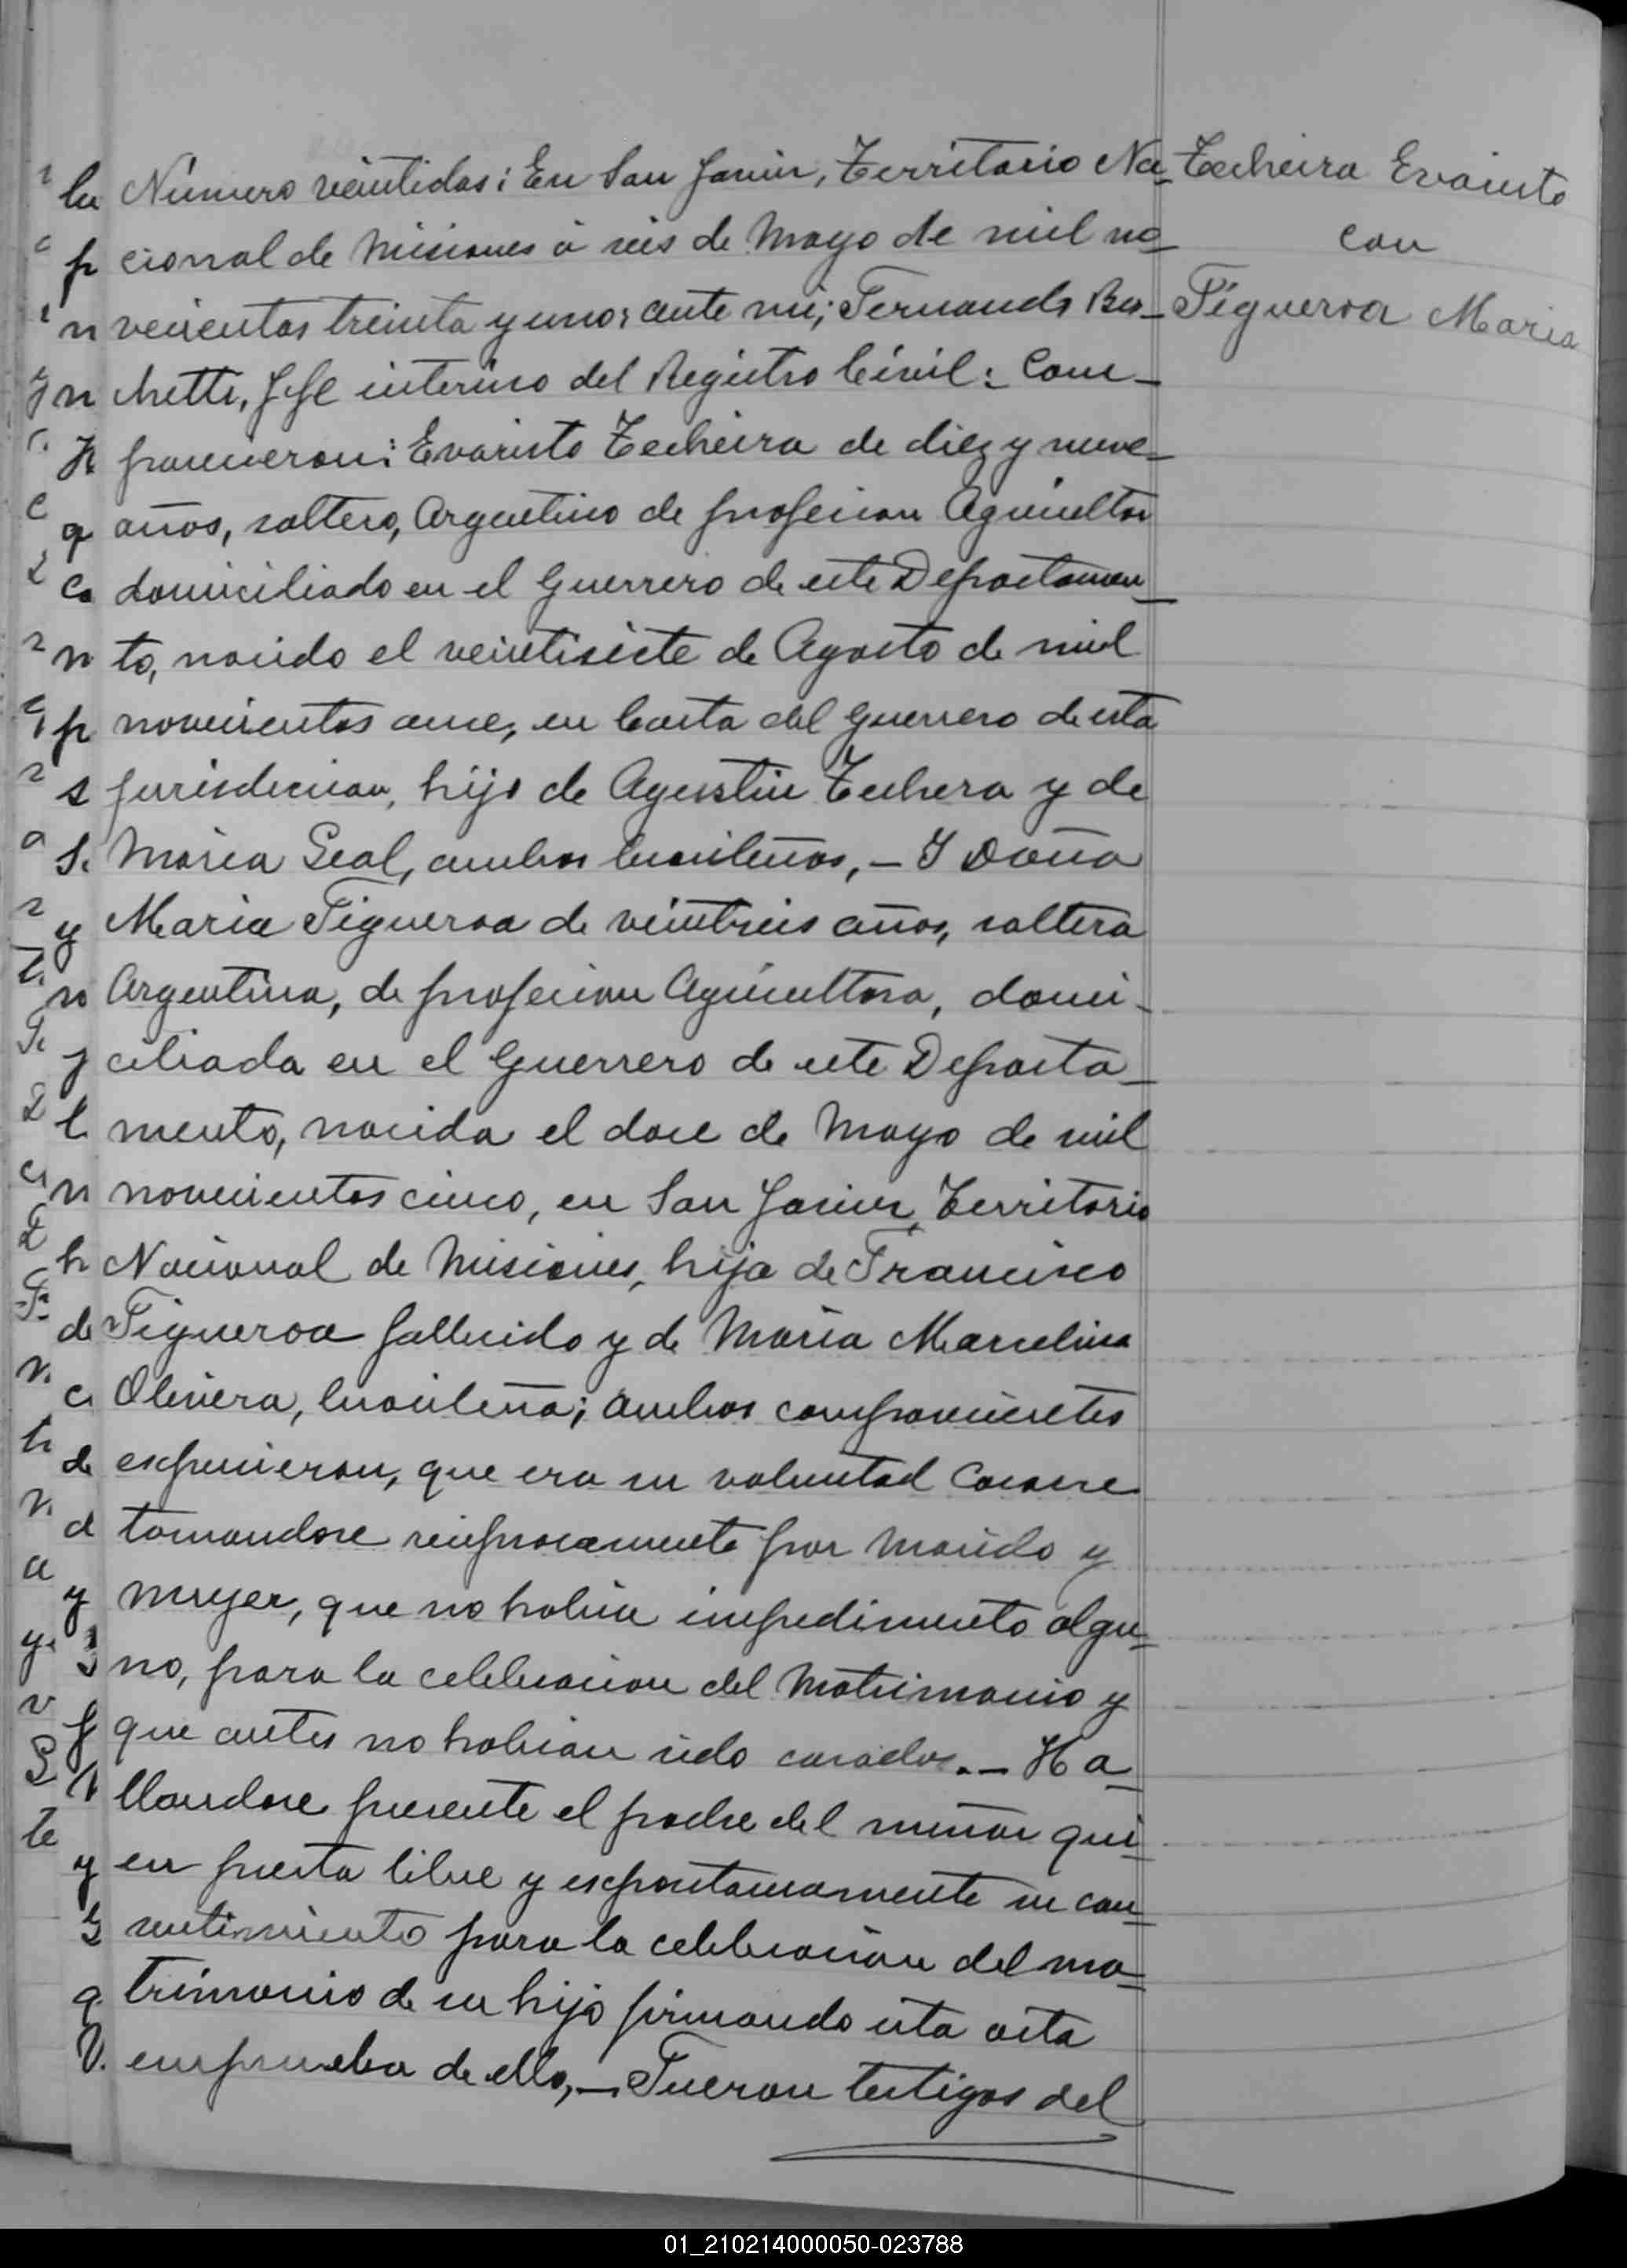 Número veintidos: En San Javier, Territorio Na_
cional de Misiones á seis de Mayo de mil no_
vecientos treinta y uno: ante mi; Fernando
chetti, Jefe interino del Registro Civil: Com_
parecieron: Evaristo Techeira de diez y nueve_
años, soltero, Argentino de profecion Agricultor
domiciliado en el Guerrero de este Departamen_
to, nacido el veintisiete de Agosto de mil
novecientos once, en Costa del Guerrero de esta
jurisdiccion, hijo de Agustin Techera y de
Maria Leal, ambos brasileños, _ Y Doña
Maria Figueroa de veintiseis años, soltera
Argentina, de profecion Agricultora, domi_
ciliada en el Guerrero de este Departa_
mento, nacida el doce de Mayo de mil
novecientos cinco, en San Javier, Territorio
Nacional de Misiones, hija de Francisco
Figueroa fallecido y de Maria Marcelina
Olivera, brasileña; ambos comparecientes
expusieron, que era su voluntad Casarse
tomandose reciprocamente por Marido y
mujer, que no habia impedimento algu_
no, para la celebracion del Matrimonio y
que antes no habian sido casados._ Ha_
llandose presente el padre del menor qui_
en presta libre y espontaneamente su con_
sentimiento para la celebracion del ma_
trimonio de su hijo firmando esta acta
en prueba de ello,_ Fueron testigos del
Techeira Evaristo
con
Figueroa Maria
01_210214000050-023788